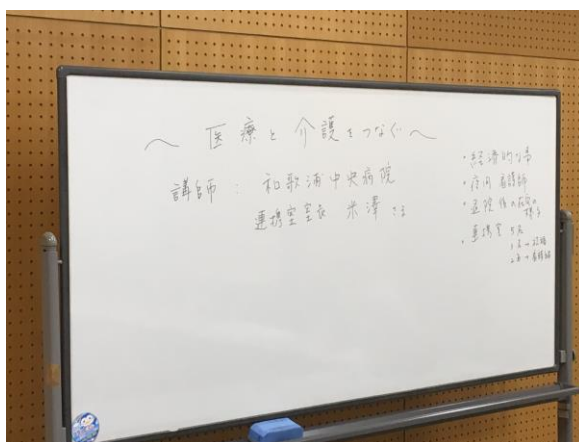 ～ 医療と介護をつなぐ ～
講師 : 和歌浦中央病院
連携室室長 米澤 さま
・経済的な事
・夜間 看護師
・退院後の在宅の
様子
・連携室 5名